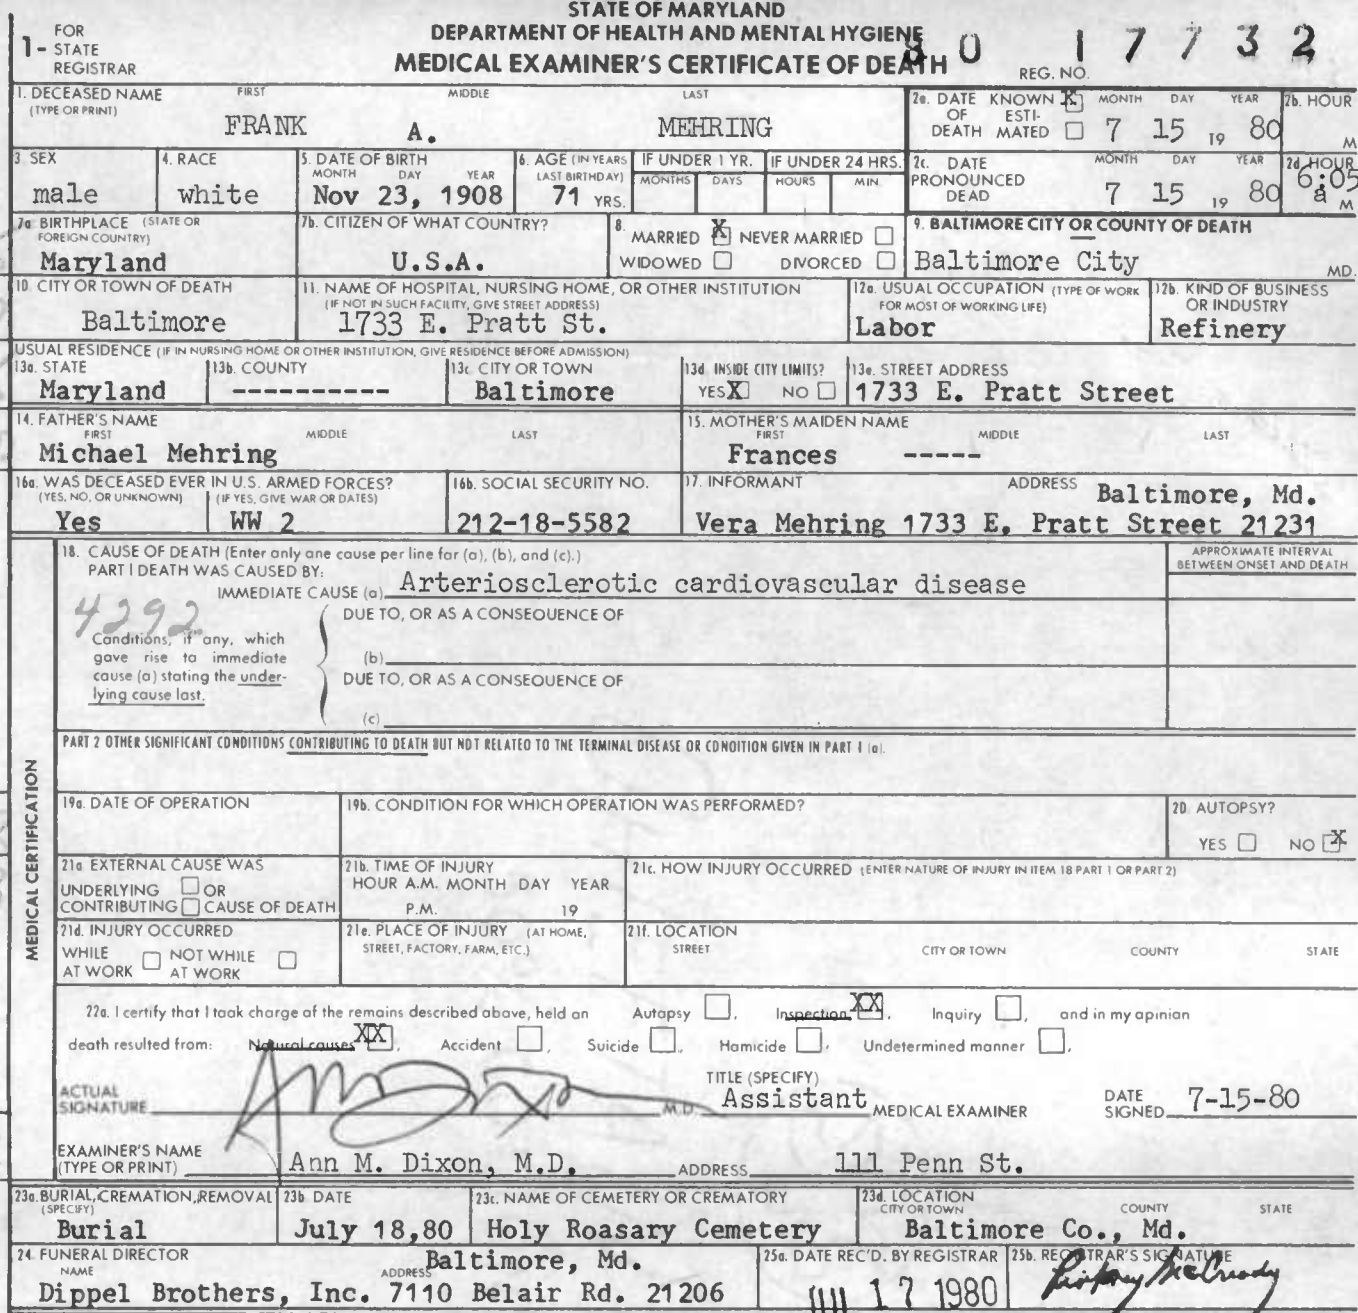 STATE OF MARYLAND
DEPARTMENT OF HEALTH AND MENTAL HYGIENE
MEDICAL EXAMINER'S CERTIFICATE OF DEATH
1- FOR STATE REGISTRAR
REG. NO. 80 17732
1. DECEASED NAME (TYPE OR PRINT) FIRST MIDDLE LAST
FRANK A. MEHRING
2a. DATE OF DEATH KNOWN X ESTIMATED MONTH DAY YEAR 7 15 19 80
2b. HOUR M
3. SEX male
4. RACE white
5. DATE OF BIRTH MONTH DAY YEAR Nov 23, 1908
6. AGE (IN YEARS LAST BIRTHDAY) 71 YRS.
IF UNDER 1 YR. MONTHS DAYS
IF UNDER 24 HRS. HOURS MIN.
2c. DATE PRONOUNCED DEAD MONTH DAY YEAR 7 15 19 80
2d. HOUR 6:05 a M
7a. BIRTHPLACE (STATE OR FOREIGN COUNTRY) Maryland
7b. CITIZEN OF WHAT COUNTRY? U.S.A.
8. MARRIED X NEVER MARRIED WIDOWED DIVORCED
9. BALTIMORE CITY OR COUNTY OF DEATH Baltimore City MD.
10. CITY OR TOWN OF DEATH Baltimore
11. NAME OF HOSPITAL, NURSING HOME, OR OTHER INSTITUTION (IF NOT IN SUCH FACILITY, GIVE STREET ADDRESS) 1733 E. Pratt St.
12a. USUAL OCCUPATION (TYPE OF WORK FOR MOST OF WORKING LIFE) Labor
12b. KIND OF BUSINESS OR INDUSTRY Refinery
USUAL RESIDENCE (IF IN NURSING HOME OR OTHER INSTITUTION, GIVE RESIDENCE BEFORE ADMISSION)
13a. STATE Maryland
13b. COUNTY ----------
13c. CITY OR TOWN Baltimore
13d. INSIDE CITY LIMITS? YES X NO
13e. STREET ADDRESS 1733 E. Pratt Street
14. FATHER'S NAME FIRST MIDDLE LAST
Michael Mehring
15. MOTHER'S MAIDEN NAME FIRST MIDDLE LAST
Frances -----
16a. WAS DECEASED EVER IN U.S. ARMED FORCES? (YES, NO, OR UNKNOWN) (IF YES, GIVE WAR OR DATES) Yes WW 2
16b. SOCIAL SECURITY NO. 212-18-5582
17. INFORMANT ADDRESS Baltimore, Md.
Vera Mehring 1733 E. Pratt Street 21231
MEDICAL CERTIFICATION
18. CAUSE OF DEATH (Enter only one cause per line for (a), (b), and (c).)
APPROXIMATE INTERVAL BETWEEN ONSET AND DEATH
PART I DEATH WAS CAUSED BY:
IMMEDIATE CAUSE (a) Arteriosclerotic cardiovascular disease
4292
DUE TO, OR AS A CONSEQUENCE OF
Conditions, if any, which gave rise to immediate cause (a) stating the underlying cause last.
(b)
DUE TO, OR AS A CONSEQUENCE OF
(c)
PART 2 OTHER SIGNIFICANT CONDITIONS CONTRIBUTING TO DEATH BUT NOT RELATED TO THE TERMINAL DISEASE OR CONDITION GIVEN IN PART 1 (a).
19a. DATE OF OPERATION
19b. CONDITION FOR WHICH OPERATION WAS PERFORMED?
20. AUTOPSY? YES NO X
21a EXTERNAL CAUSE WAS UNDERLYING OR CONTRIBUTING CAUSE OF DEATH
21b. TIME OF INJURY HOUR A.M. MONTH DAY YEAR P.M. 19
21c. HOW INJURY OCCURRED (ENTER NATURE OF INJURY IN ITEM 18 PART 1 OR PART 2)
21d. INJURY OCCURRED WHILE AT WORK NOT WHILE AT WORK
21e. PLACE OF INJURY (AT HOME, STREET, FACTORY, FARM, ETC.)
21f. LOCATION STREET CITY OR TOWN COUNTY STATE
22a. I certify that I took charge of the remains described above, held an Autopsy , Inspection XX, Inquiry , and in my opinion
death resulted from: Natural causes XX, Accident , Suicide , Homicide , Undetermined manner .
ACTUAL SIGNATURE M.D.
TITLE (SPECIFY) Assistant MEDICAL EXAMINER
DATE SIGNED 7-15-80
EXAMINER'S NAME (TYPE OR PRINT) Ann M. Dixon, M.D. ADDRESS 111 Penn St.
23a. BURIAL, CREMATION, REMOVAL (SPECIFY) Burial
23b DATE July 18,80
23c. NAME OF CEMETERY OR CREMATORY Holy Roasary Cemetery
23d. LOCATION CITY OR TOWN COUNTY STATE Baltimore Co., Md.
24. FUNERAL DIRECTOR NAME ADDRESS Baltimore, Md.
Dippel Brothers, Inc. 7110 Belair Rd. 21206
25a. DATE REC'D. BY REGISTRAR 17 1980
25b. REGISTRAR'S SIGNATURE